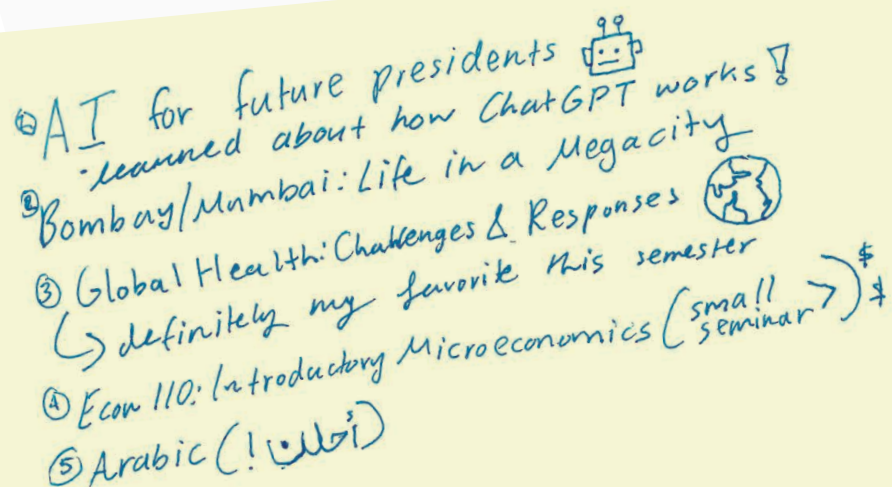 ① AI for future presidents
· learned about how ChatGPT works!
② Bombay/Mumbai: Life in a Megacity
③ Global Health: Challenges & Responses
↳ definitely my favorite this semester
④ Econ 110: Introductory Microeconomics (small seminar →) $ $
⑤ Arabic (!أحلن)